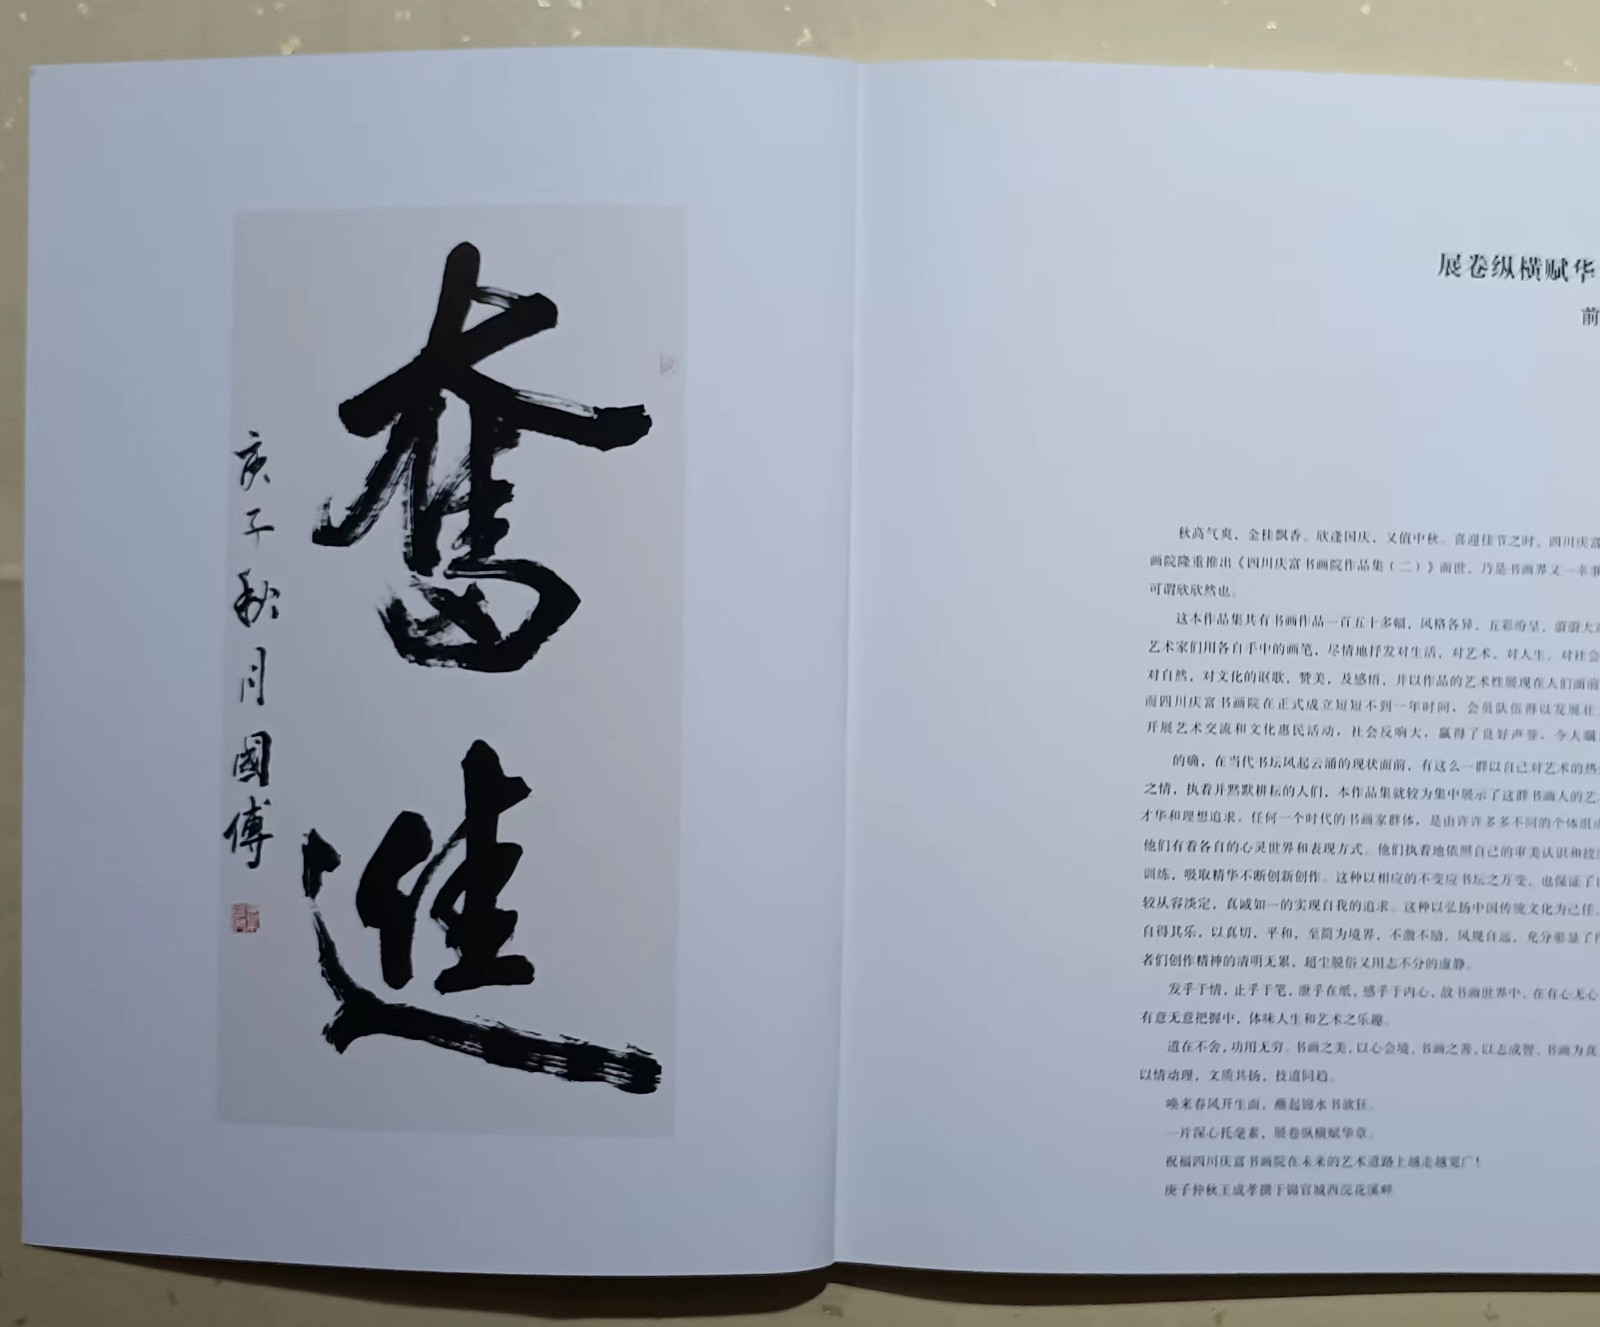 奮進
庚子秋月國傅
展卷纵横赋华
前
秋高气爽，金桂飘香。欣逢国庆，又值中秋。喜迎佳节之时，四川庆富
画院隆重推出《四川庆富书画院作品集（二）》面世，乃是书画界又一幸事
可谓欣欣然也。
这本作品集共有书画作品一百五十多幅，风格各异，五彩纷呈，蔚蔚大
艺术家们用各自手中的画笔，尽情地抒发对生活，对艺术，对人生，对社会
对自然，对文化的讴歌，赞美，及感悟，并以作品的艺术性展现在人们面前
而四川庆富书画院在正式成立短短不到一年时间，会员队伍得以发展壮
开展艺术交流和文化惠民活动，社会反响大，赢得了良好声誉，令人瞩
的确，在当代书坛风起云涌的现状面前，有这么一群以自己对艺术的热
之情，执着并默默耕耘的人们，本作品集就较为集中展示了这群书画人的艺
才华和理想追求。任何一个时代的书画家群体，是由许许多多不同的个体组成
他们有着各自的心灵世界和表现方式。他们执着地依照自己的审美认识和技
训练，吸取精华不断创新创作。这种以相应的不变应书坛之万变，也保证了
较从容淡定，真诚如一的实现自我的追求。这种以弘扬中国传统文化为己任，
自得其乐，以真切，平和，至简为境界，不激不励，风规自远，充分彰显了作
者们创作精神的清明无累，超尘脱俗又用志不分的虚静。
发乎于情，止乎于笔，泄乎在纸，感乎于内心，故书画世界中，在有心无心
有意无意把握中，体味人生和艺术之乐趣。
道在不舍，功用无穷。书画之美，以心会境，书画之善，以志成智，书画为真，
以情动理，文质共扬，技道同趋。
唤来春风开生面，蘸起锦水书欲狂。
一片深心托毫素，展卷纵横赋华章。
祝福四川庆富书画院在未来的艺术道路上越走越宽广！
庚子仲秋王成孝撰于锦官城西浣花溪畔